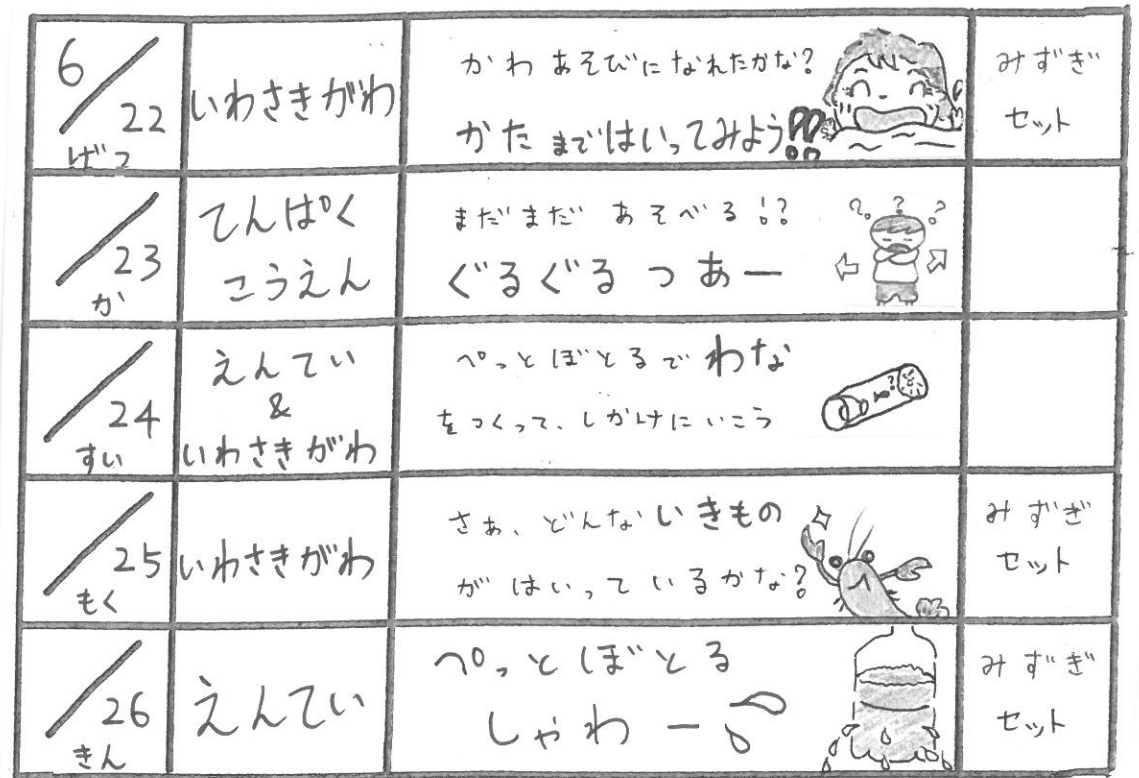 6/22
げつ
いわさきがわ
かわあそびになれたかな?
かたまではいってみよう!?
みずぎ
セット
/23
か
てんぱく
こうえん
まだまだ あそべる!?
ぐるぐるつあー
/24
すい
えんてい
&
いわさきがわ
ぺっとぼとるでわな
をつくって、しかけにいこう
/25
もく
いわさきがわ
さぁ、どんないきもの
がはいっているかな?
みずぎ
セット
/26
きん
えんてい
ぺっとぼとる
しゃわー
みずぎ
セット